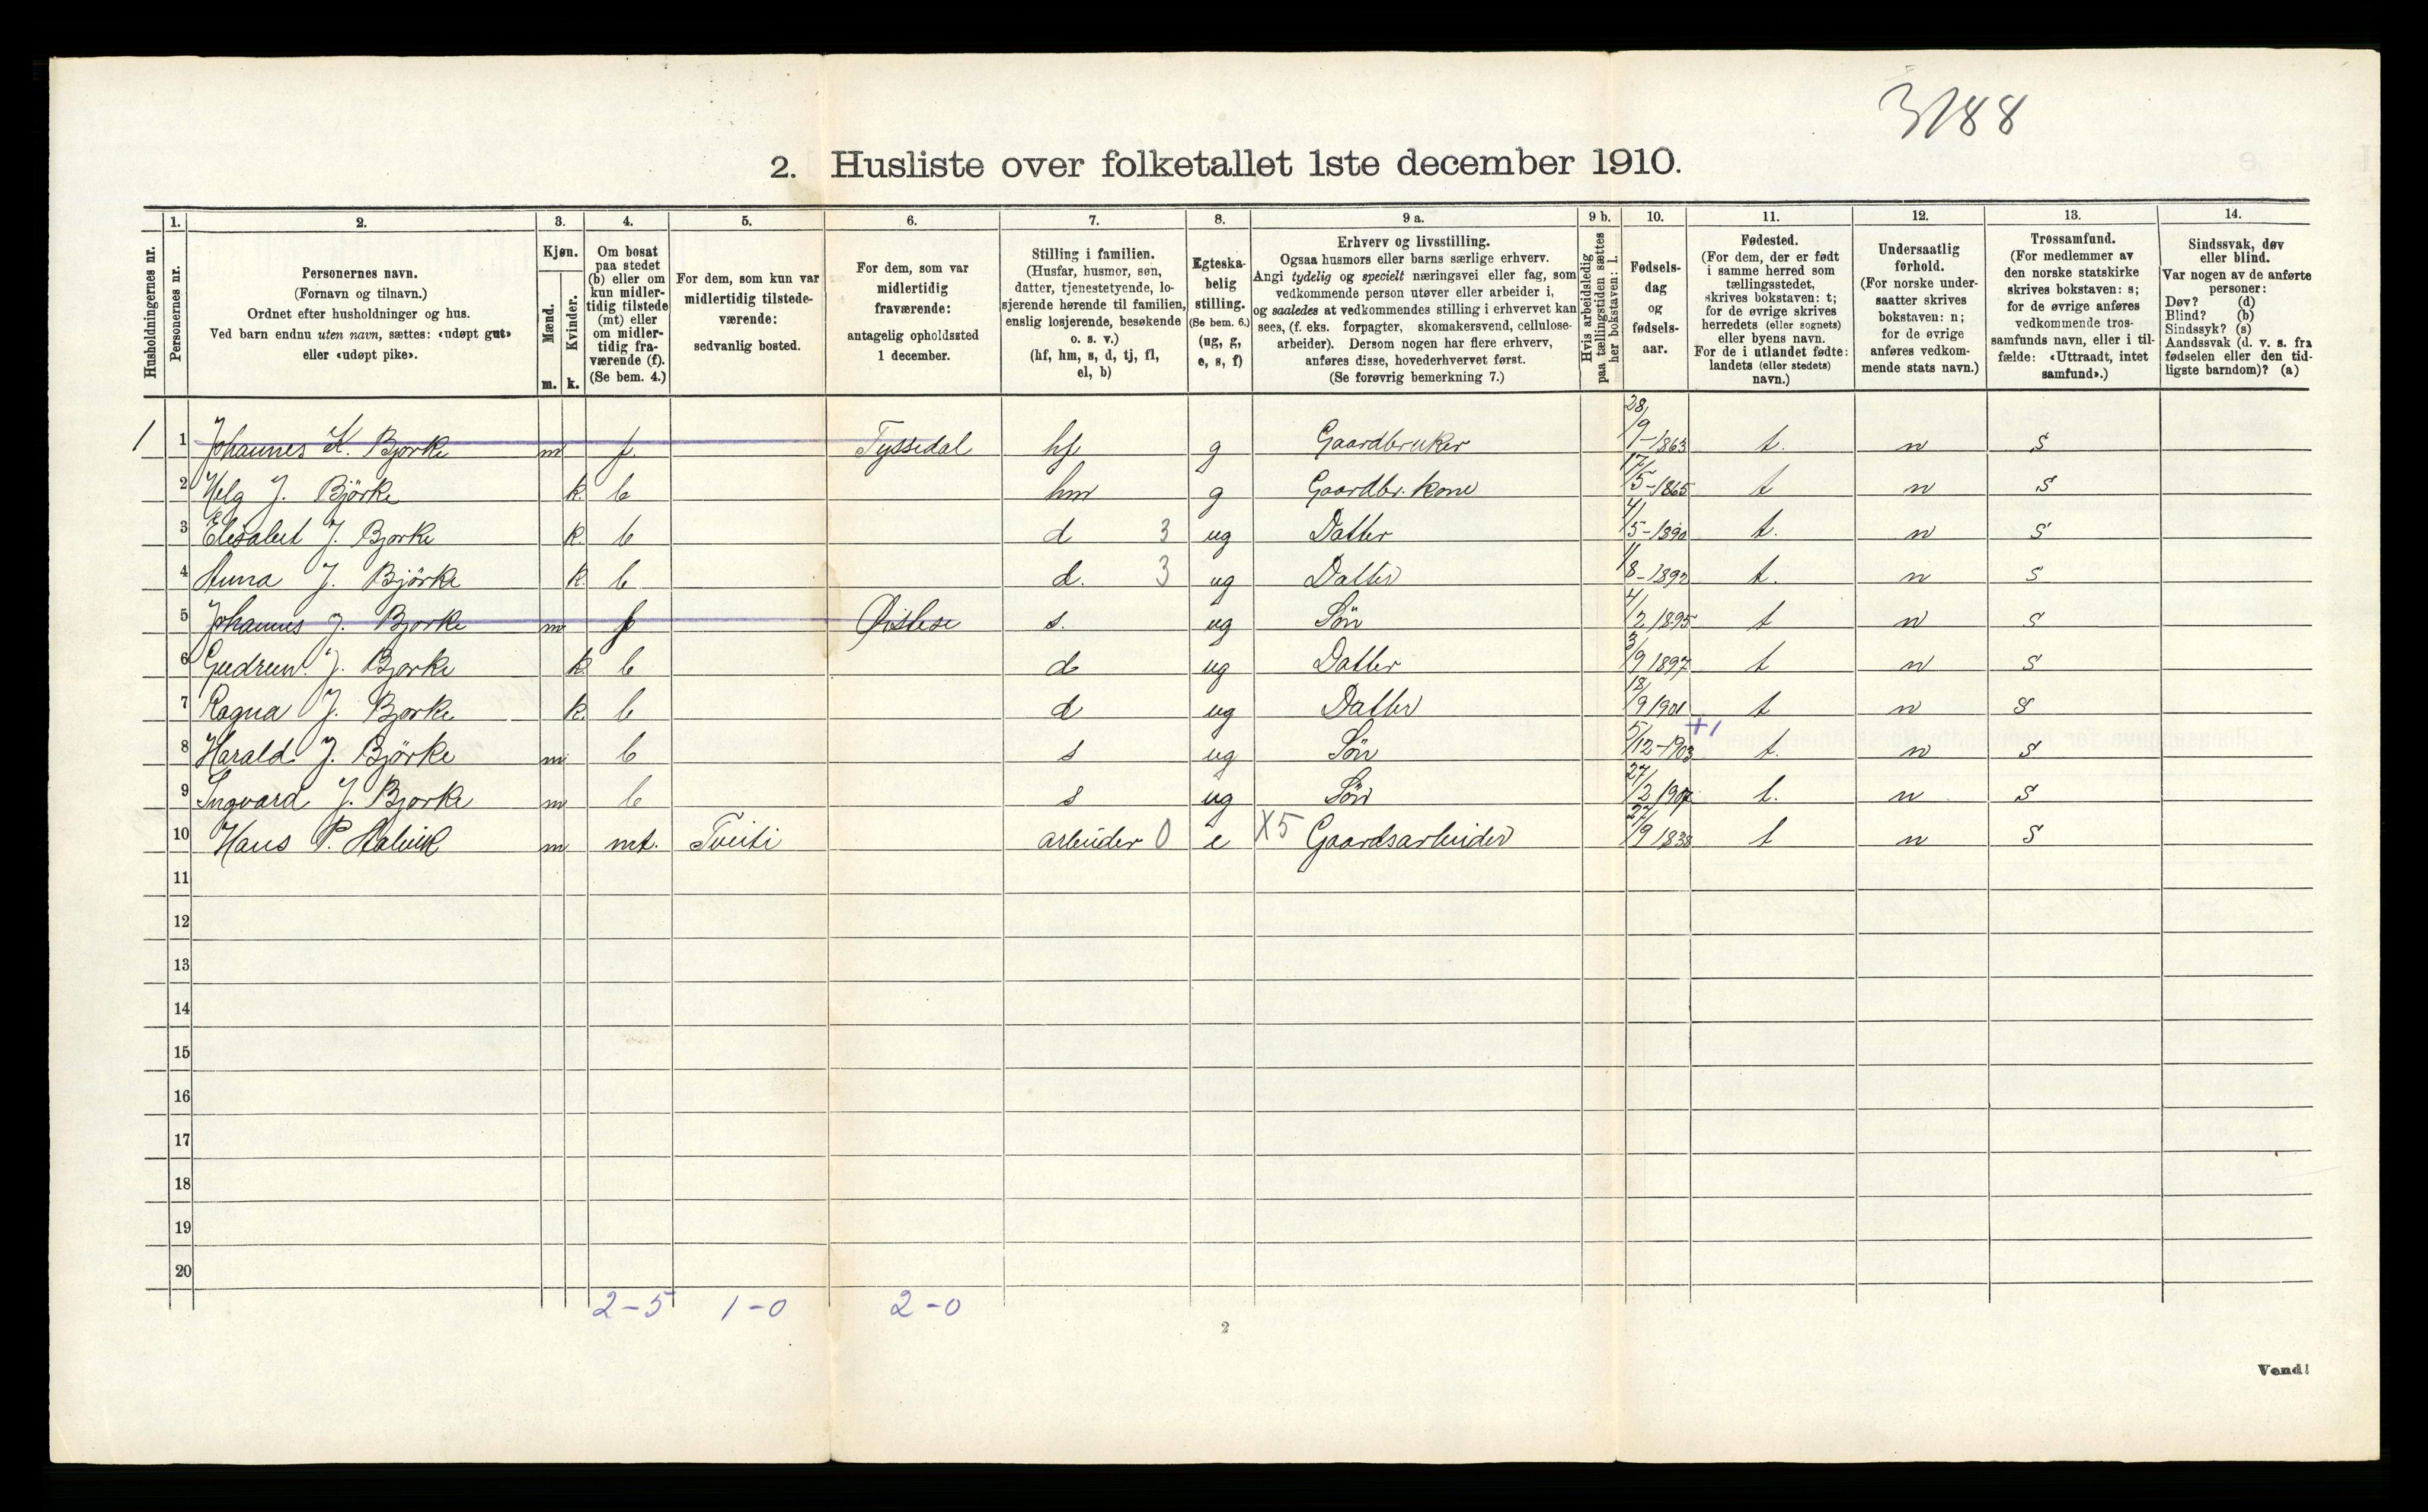 3188
2. Husliste over folketallet 1ste december 1910.
Husholdningernes nr.
1. Personernes nr.
2. Personernes navn.
(Fornavn og tilnavn.)
Ordnet efter husholdninger og hus.
Ved barn endnu uten navn, sættes: «udøpt gut»
eller «udøpt pike».
3. Kjøn.
Mænd. m.
Kvinder. k.
4. Om bosat
paa stedet
(b) eller om
kun midler-
tidig tilstede
(mt) eller
om midler-
tidig fra-
værende (f).
(Se bem. 4.)
5. For dem, som kun var
midlertidig tilstede-
værende:
sedvanlig bosted.
6. For dem, som var
midlertidig
fraværende:
antagelig opholdssted
1 december.
7. Stilling i familien.
(Husfar, husmor, søn,
datter, tjenestetyende, lo-
sjerende hørende til familien,
enslig losjerende, besøkende
o. s. v.)
(hf, hm, s, d, tj, fl,
el, b)
8. Egteska-
belig
stilling.
(Se bem. 6.)
(ug, g,
e, s, f)
9 a. Erhverv og livsstilling.
Ogsaa husmors eller barns særlige erhverv.
Angi tydelig og specielt næringsvei eller fag, som
vedkommende person utøver eller arbeider i,
og saaledes at vedkommendes stilling i erhvervet kan
sees, (f. eks. forpagter, skomakersvend, cellulose-
arbeider). Dersom nogen har flere erhverv,
anføres disse, hovederhvervet først.
(Se forøvrig bemerkning 7.)
9 b. Hvis arbeidsledig
paa tællingstiden sættes
her bokstaven: l.
10. Fødsels-
dag
og
fødsels-
aar.
11. Fødested.
(For dem, der er født
i samme herred som
tællingsstedet,
skrives bokstaven: t;
for de øvrige skrives
herredets (eller sognets)
eller byens navn.
For de i utlandet fødte:
landets (eller stedets)
navn.)
12. Undersaatlig
forhold.
(For norske under-
saatter skrives
bokstaven: n;
for de øvrige
anføres vedkom-
mende stats navn.)
13. Trossamfund.
(For medlemmer av
den norske statskirke
skrives bokstaven: s;
for de øvrige anføres
vedkommende tros-
samfunds navn, eller i til-
fælde: «Uttraadt, intet
samfund».)
14. Sindssvak, døv
eller blind.
Var nogen av de anførte
personer:
Døv? (d)
Blind? (b)
Sindssyk? (s)
Aandssvak (d. v. s. fra
fødselen eller den tid-
ligste barndom)? (a)
1 1 Johannes K. Bjorke m f Tyssedal hf g Gaardbruker 28/9-1863 t. n s
2 Helg J. Björke k. b hm g Gaardbr. kone 17/5-1865 t n s
3 Elisabet J. Bjorke k. b d 3 ug Datter 4/5-1890 t. n s
4 Anna J. Björke k. b d. 3 ug Datter 1/8-1892 t. n s
5 Johannes J. Bjorke m f Østese s. ug Sön 4/2 1895 t n s
6 Gudrun J. Bjorke k b d ug Datter 3/9 1897 t n s
7 Ragna J. Bjorke k. b d ug Datter 18/9 1901 t n s
8 Harald J. Björke m b s ug Sön 5/12-1903 +1 t. n s
9 Ingvard J. Bjorke m b s ug Sön 27/2 1907 t. n s
10 Hans P. m mt. Tveiti arbeider 0 e X5 Gaardsarbeider 27/9 1838 t n s
11
12
13
14
15
16
17
18
19
20
2-5 1-0 2-0
2
Vend!